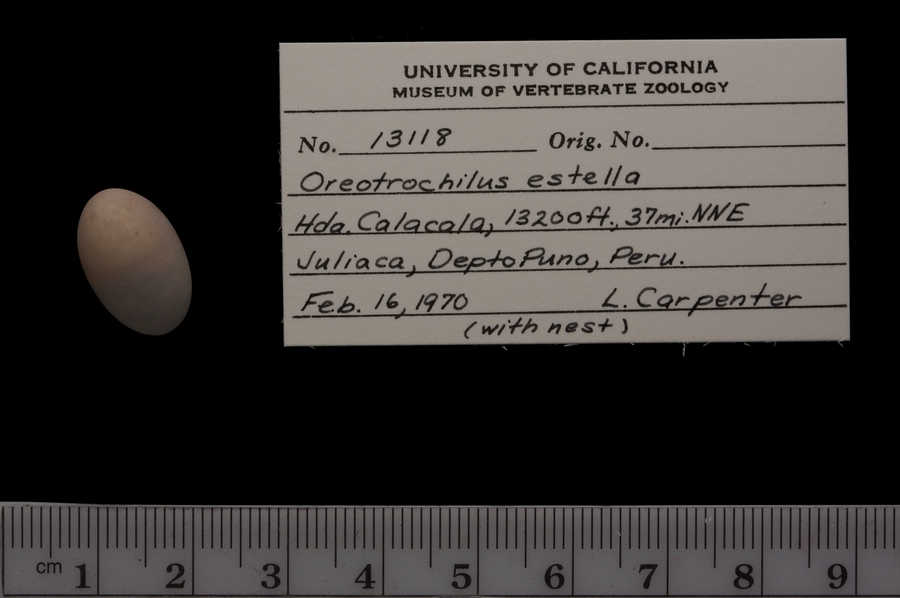 UNIVERSITY OF CALIFORNIA
MUSEUM OF VERTEBRATE ZOOLOGY
No. 13118 Orig. No.
Oreotrochilus estella
Hda. Calacala, 13200ft., 37mi. NNE
Juliaca, Depto Puno, Peru.
Feb. 16, 1970 L. Carpenter
(with nest)
cm 1 2 3 4 5 6 7 8 9